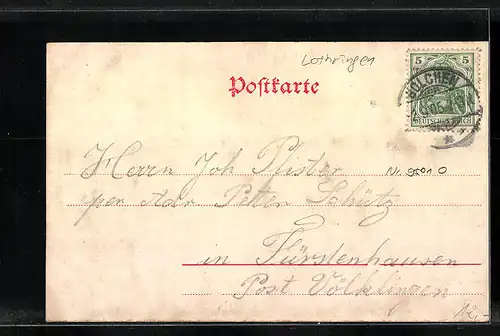 Lothringen
Postkarte
5 5
BOLCHEN
DEUTSCHES REICH
Herrn Joh Pfister
Nr. 9501 O
per Adr. Peter Schütz
in Fürstenhausen
Post Völklingen
12,-